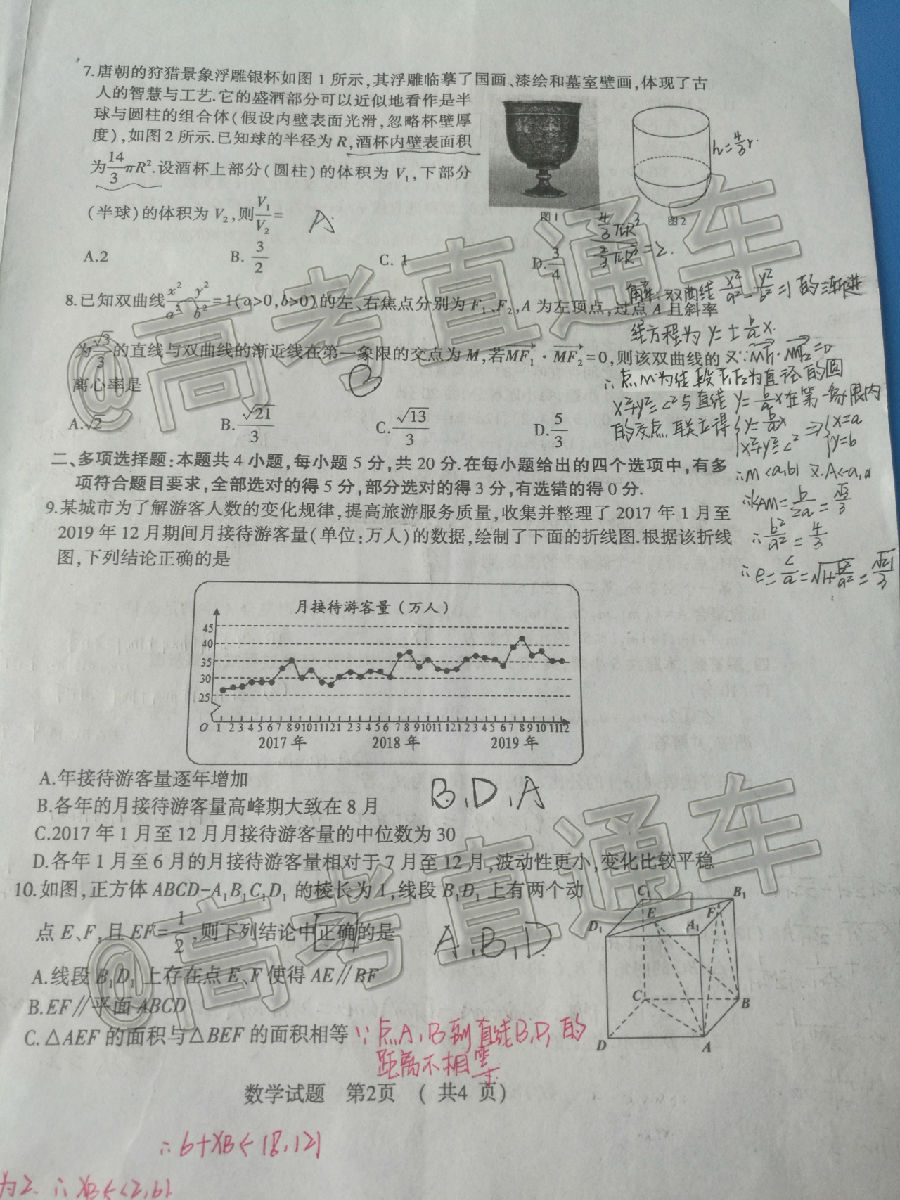 7.唐朝的狩猎景象浮雕银杯如图1所示,其浮雕临摹了国画、漆绘和墓室壁画,体现了古
人的智慧与工艺.它的盛酒部分可以近似地看作是半
球与圆柱的组合体(假设内壁表面光滑,忽略杯壁厚
度),如图2所示.已知球的半径为R,酒杯内壁表面积
为14/3πR².设酒杯上部分(圆柱)的体积为V₁,下部分
(半球)的体积为V₂,则V₁/V₂=
A
A.2 B.3/2 C.1 D.3/4
图1 图2
h=4/3r.
4/3πR²/2/3πR²=2.
8.已知双曲线x²/a²-y²/b²=1(a>0,b>0)的左、右焦点分别为F₁、F₂,A为左顶点,过点A且斜率
为√3/3的直线与双曲线的渐近线在第一象限的交点为M,若MF₁·MF₂=0,则该双曲线的
离心率是
B
A.√2 B.√21/3 C.√13/3 D.5/3
解:双曲线x²/a²-y²/b²=1的渐近
线方程为y=±b/a x.
又∵MF₁·MF₂=0
∴点M为线段F₁F₂为直径的圆
x²+y²=c²与直线y=b/a x在第一象限内
的交点.联立得{y=b/a x x²+y²=c² ⇒{x=a y=b
∴M(a,b) 又A(-a,0)
∴kAM=b/2a=√3/3
∴b²/a²=4/3
∴e=c/a=√1+b²/a²=√21/3
二、多项选择题:本题共4小题,每小题5分,共20分.在每小题给出的四个选项中,有多
项符合题目要求,全部选对的得5分,部分选对的得3分,有选错的得0分.
9.某城市为了解游客人数的变化规律,提高旅游服务质量,收集并整理了2017年1月至
2019年12月期间月接待游客量(单位:万人)的数据,绘制了下面的折线图.根据该折线
图,下列结论正确的是
月接待游客量(万人)
45
40
35
30
25
O 1 2 3 4 5 6 7 8 9 10 11 12 1 2 3 4 5 6 7 8 9 10 11 12 1 2 3 4 5 6 7 8 9 10 11 12
2017年 2018年 2019年
A.年接待游客量逐年增加
B.各年的月接待游客量高峰期大致在8月
B,D,A
C.2017年1月至12月月接待游客量的中位数为30
D.各年1月至6月的月接待游客量相对于7月至12月,波动性更小,变化比较平稳
10.如图,正方体ABCD-A₁B₁C₁D₁的棱长为1,线段B₁D₁上有两个动
点E、F,且EF=1/2,则下列结论中正确的是
A,B,D
A.线段B₁D₁上存在点E、F使得AE∥BF
B.EF∥平面ABCD
C.△AEF的面积与△BEF的面积相等
∵点A,B到直线B₁D₁的
距离不相等
C₁ B₁ E F D₁ A₁ C B D A
数学试题 第2页 (共4页)
∴6+xB<[8,12]
为2.∴xB<(2,6]
@高考直通车
@高考直通车